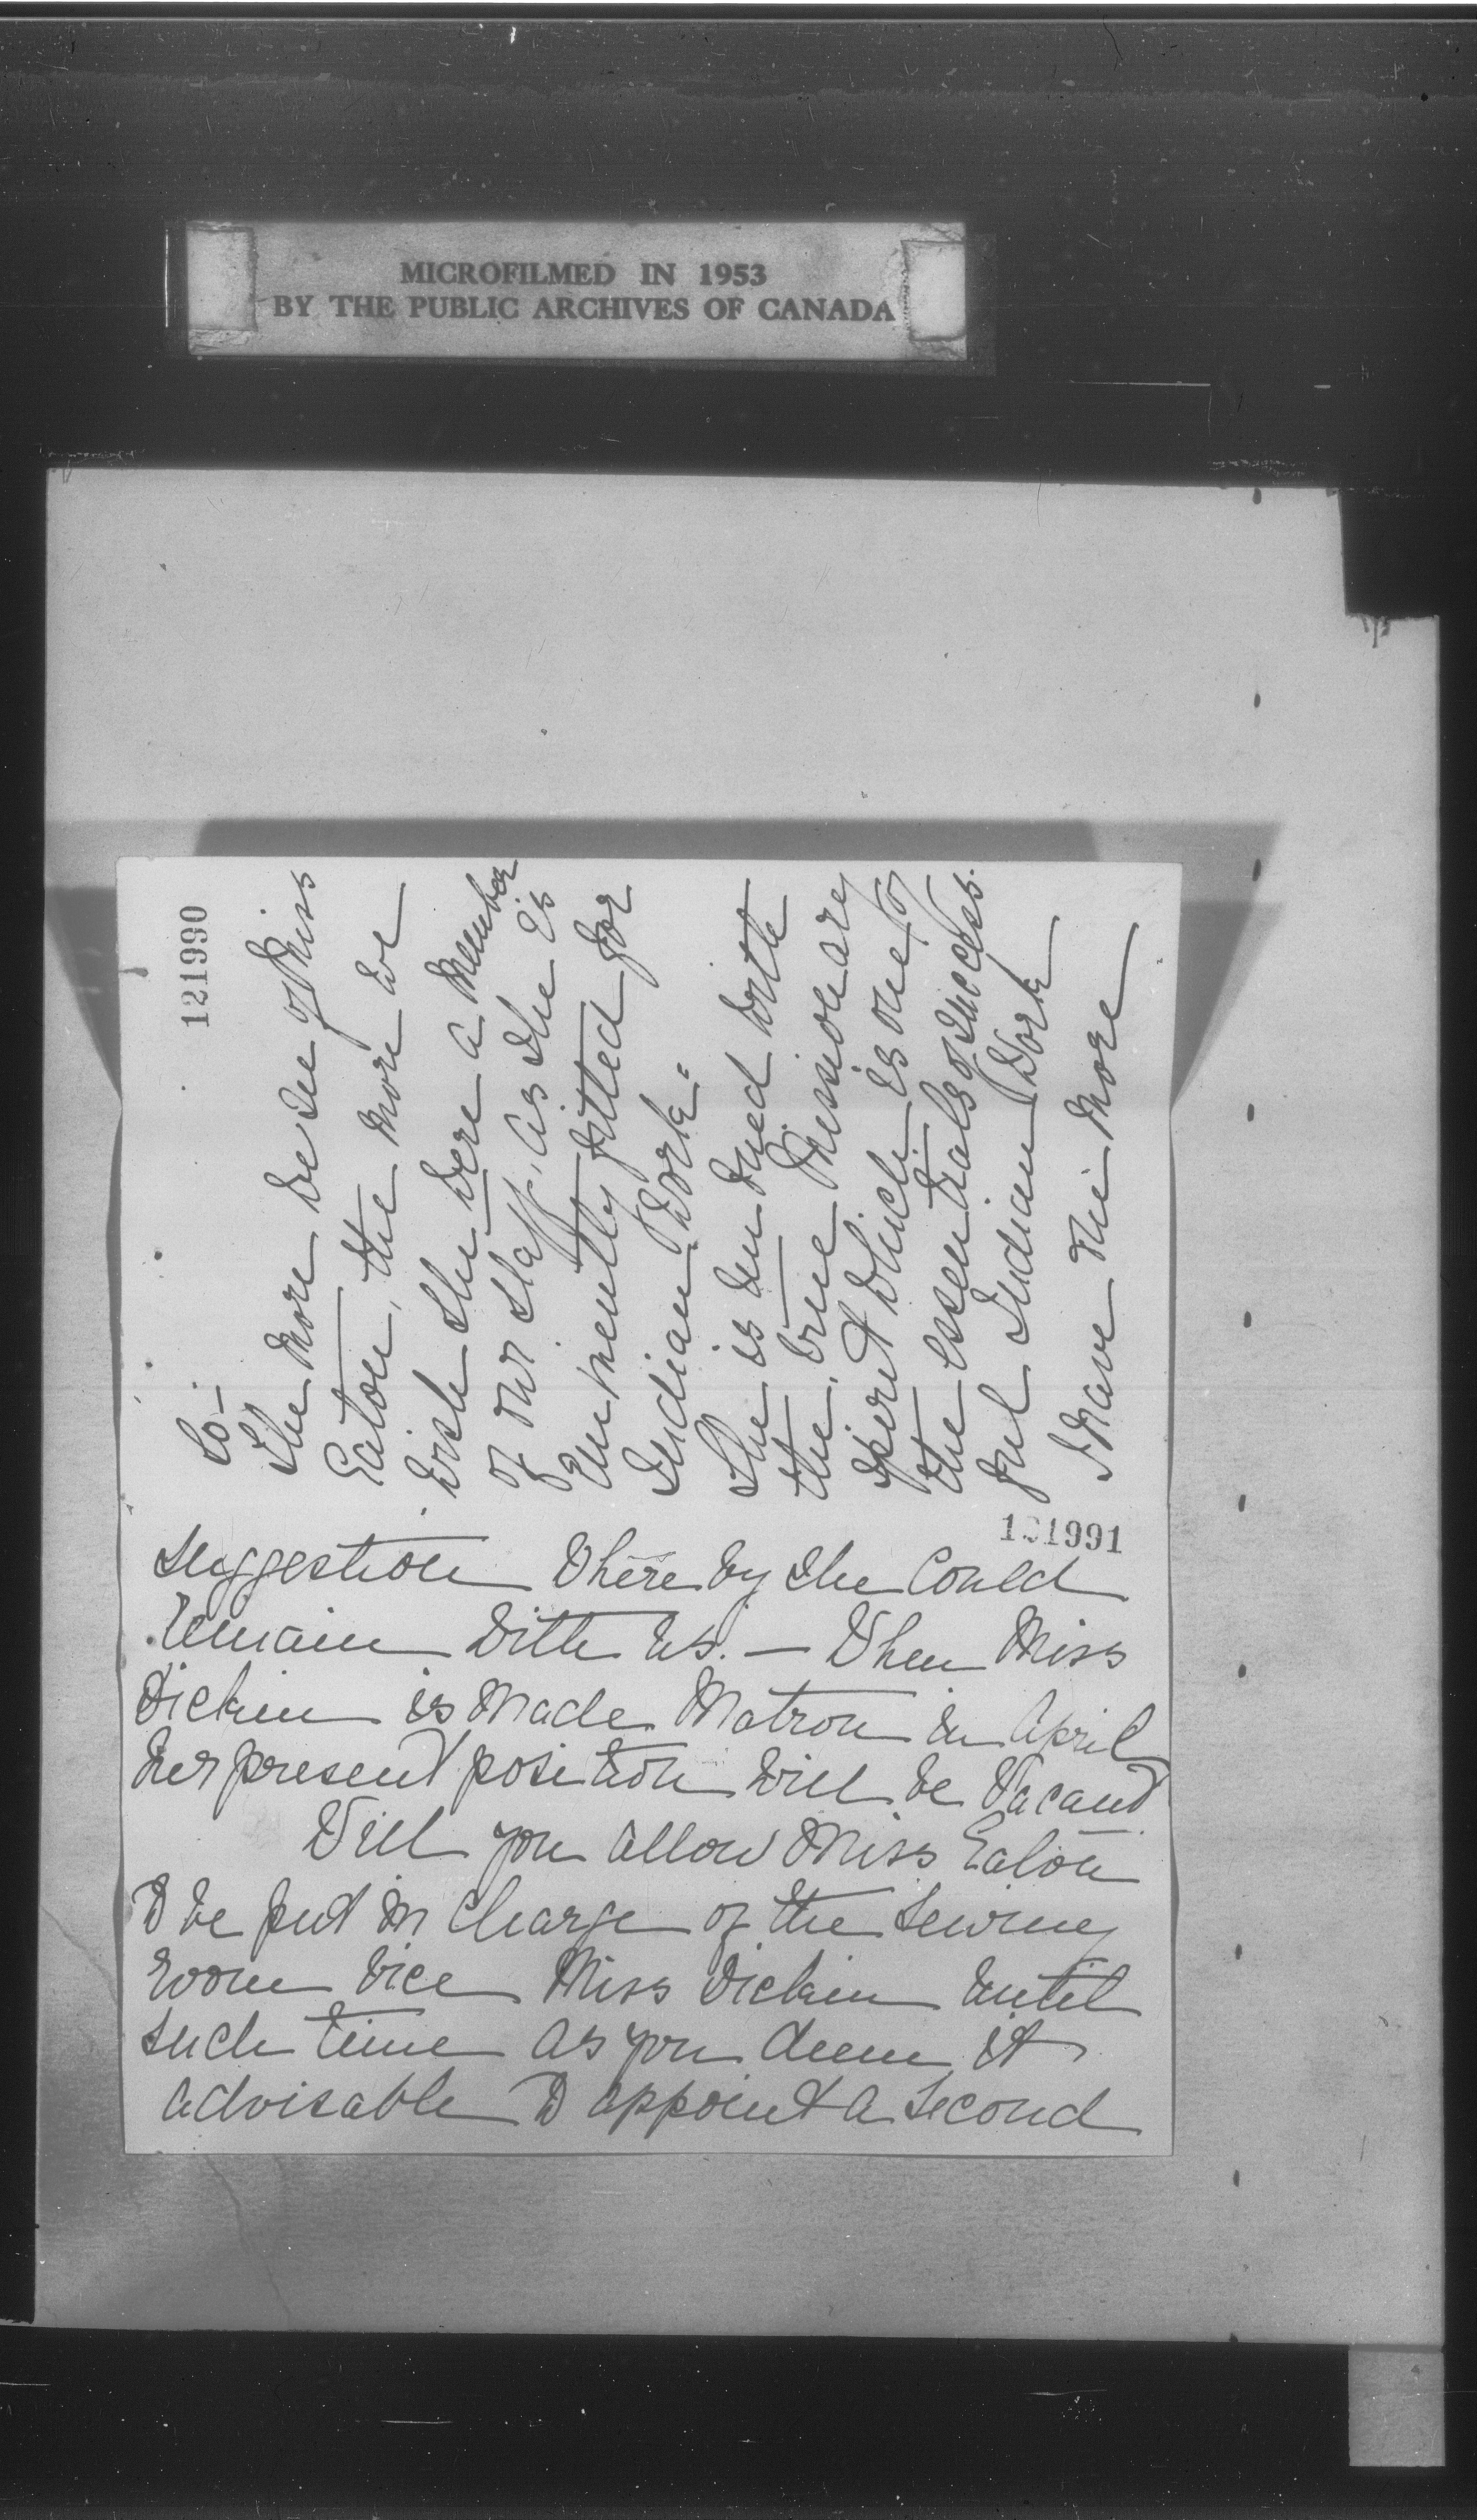 MICROFILMED IN 1953
BY THE PUBLIC ARCHIVES OF CANADA
121990
so-
The more we see of Miss
Eaton, the more we
wish she were a member
of our staff, as she is
Eminently fitted for
Indian work-
She is imbued with
the true Missionary
spirit which is one of
the essentials of success-
ful Indian Work
I have one more
121991
suggestion whereby she Could
remain with us. — When Miss
Dickin is made Matron in April
her present position will be Vacant
Will you allow Miss Eaton
to be put in Charge of the sewing
room vice Miss Dickin until
such time as you deem it
advisable to appoint a second